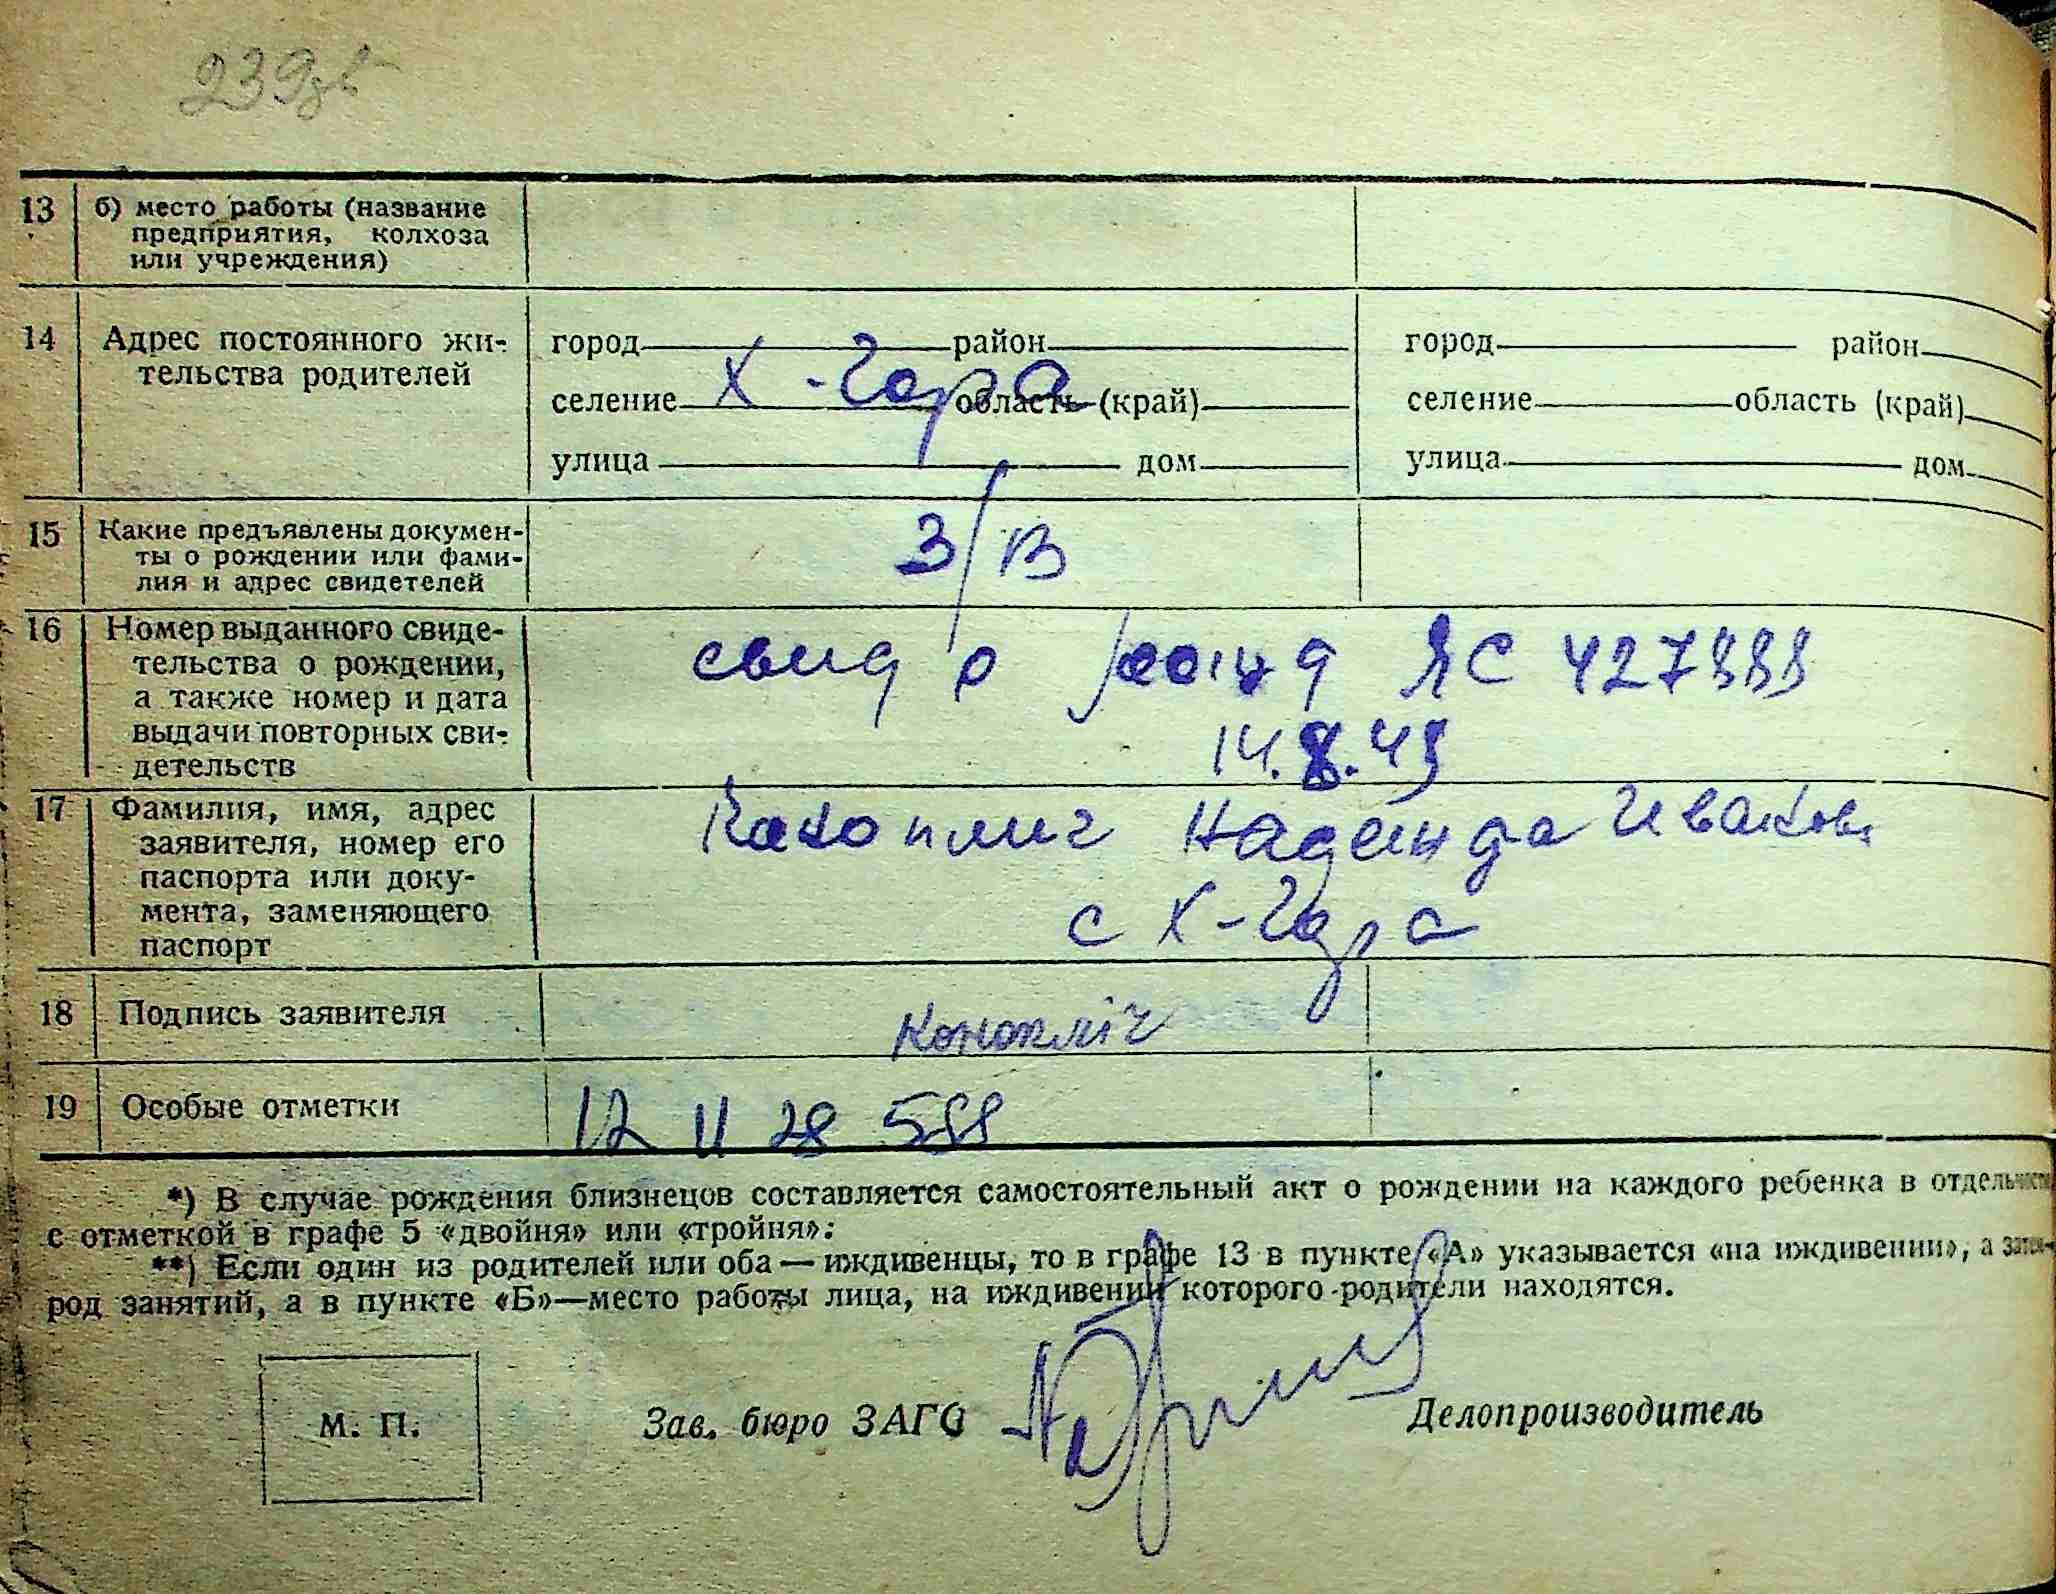 239зв
13 б) место работы (название
предприятия, колхоза
или учреждения)
14 Адрес постоянного жи-
тельства родителей
город район
селение Х-Гора область (край)
улица дом
город район
селение область (край)
улица дом
15 Какие предъявлены докумен-
ты о рождении или фами-
лия и адрес свидетелей
З/В
16 Номер выданного свиде-
тельства о рождении,
а также номер и дата
выдачи повторных сви-
детельств
свид о рожд ЯС 427888
14.8.49
17 Фамилия, имя, адрес
заявителя, номер его
паспорта или доку-
мента, заменяющего
паспорт
Коноплич Надежда Иванов
с Х-Гора
18 Подпись заявителя
Конопліч
19 Особые отметки
12 II 28 588
*) В случае рождения близнецов составляется самостоятельный акт о рождении на каждого ребенка в отдельности
с отметкой в графе 5 «двойня» или «тройня»:
**) Если один из родителей или оба — иждивенцы, то в графе 13 в пункте «А» указывается «на иждивении», а затем
род занятий, а в пункте «Б»—место работы лица, на иждивении которого родители находятся.
М. П.
Зав. бюро ЗАГС
Делопроизводитель